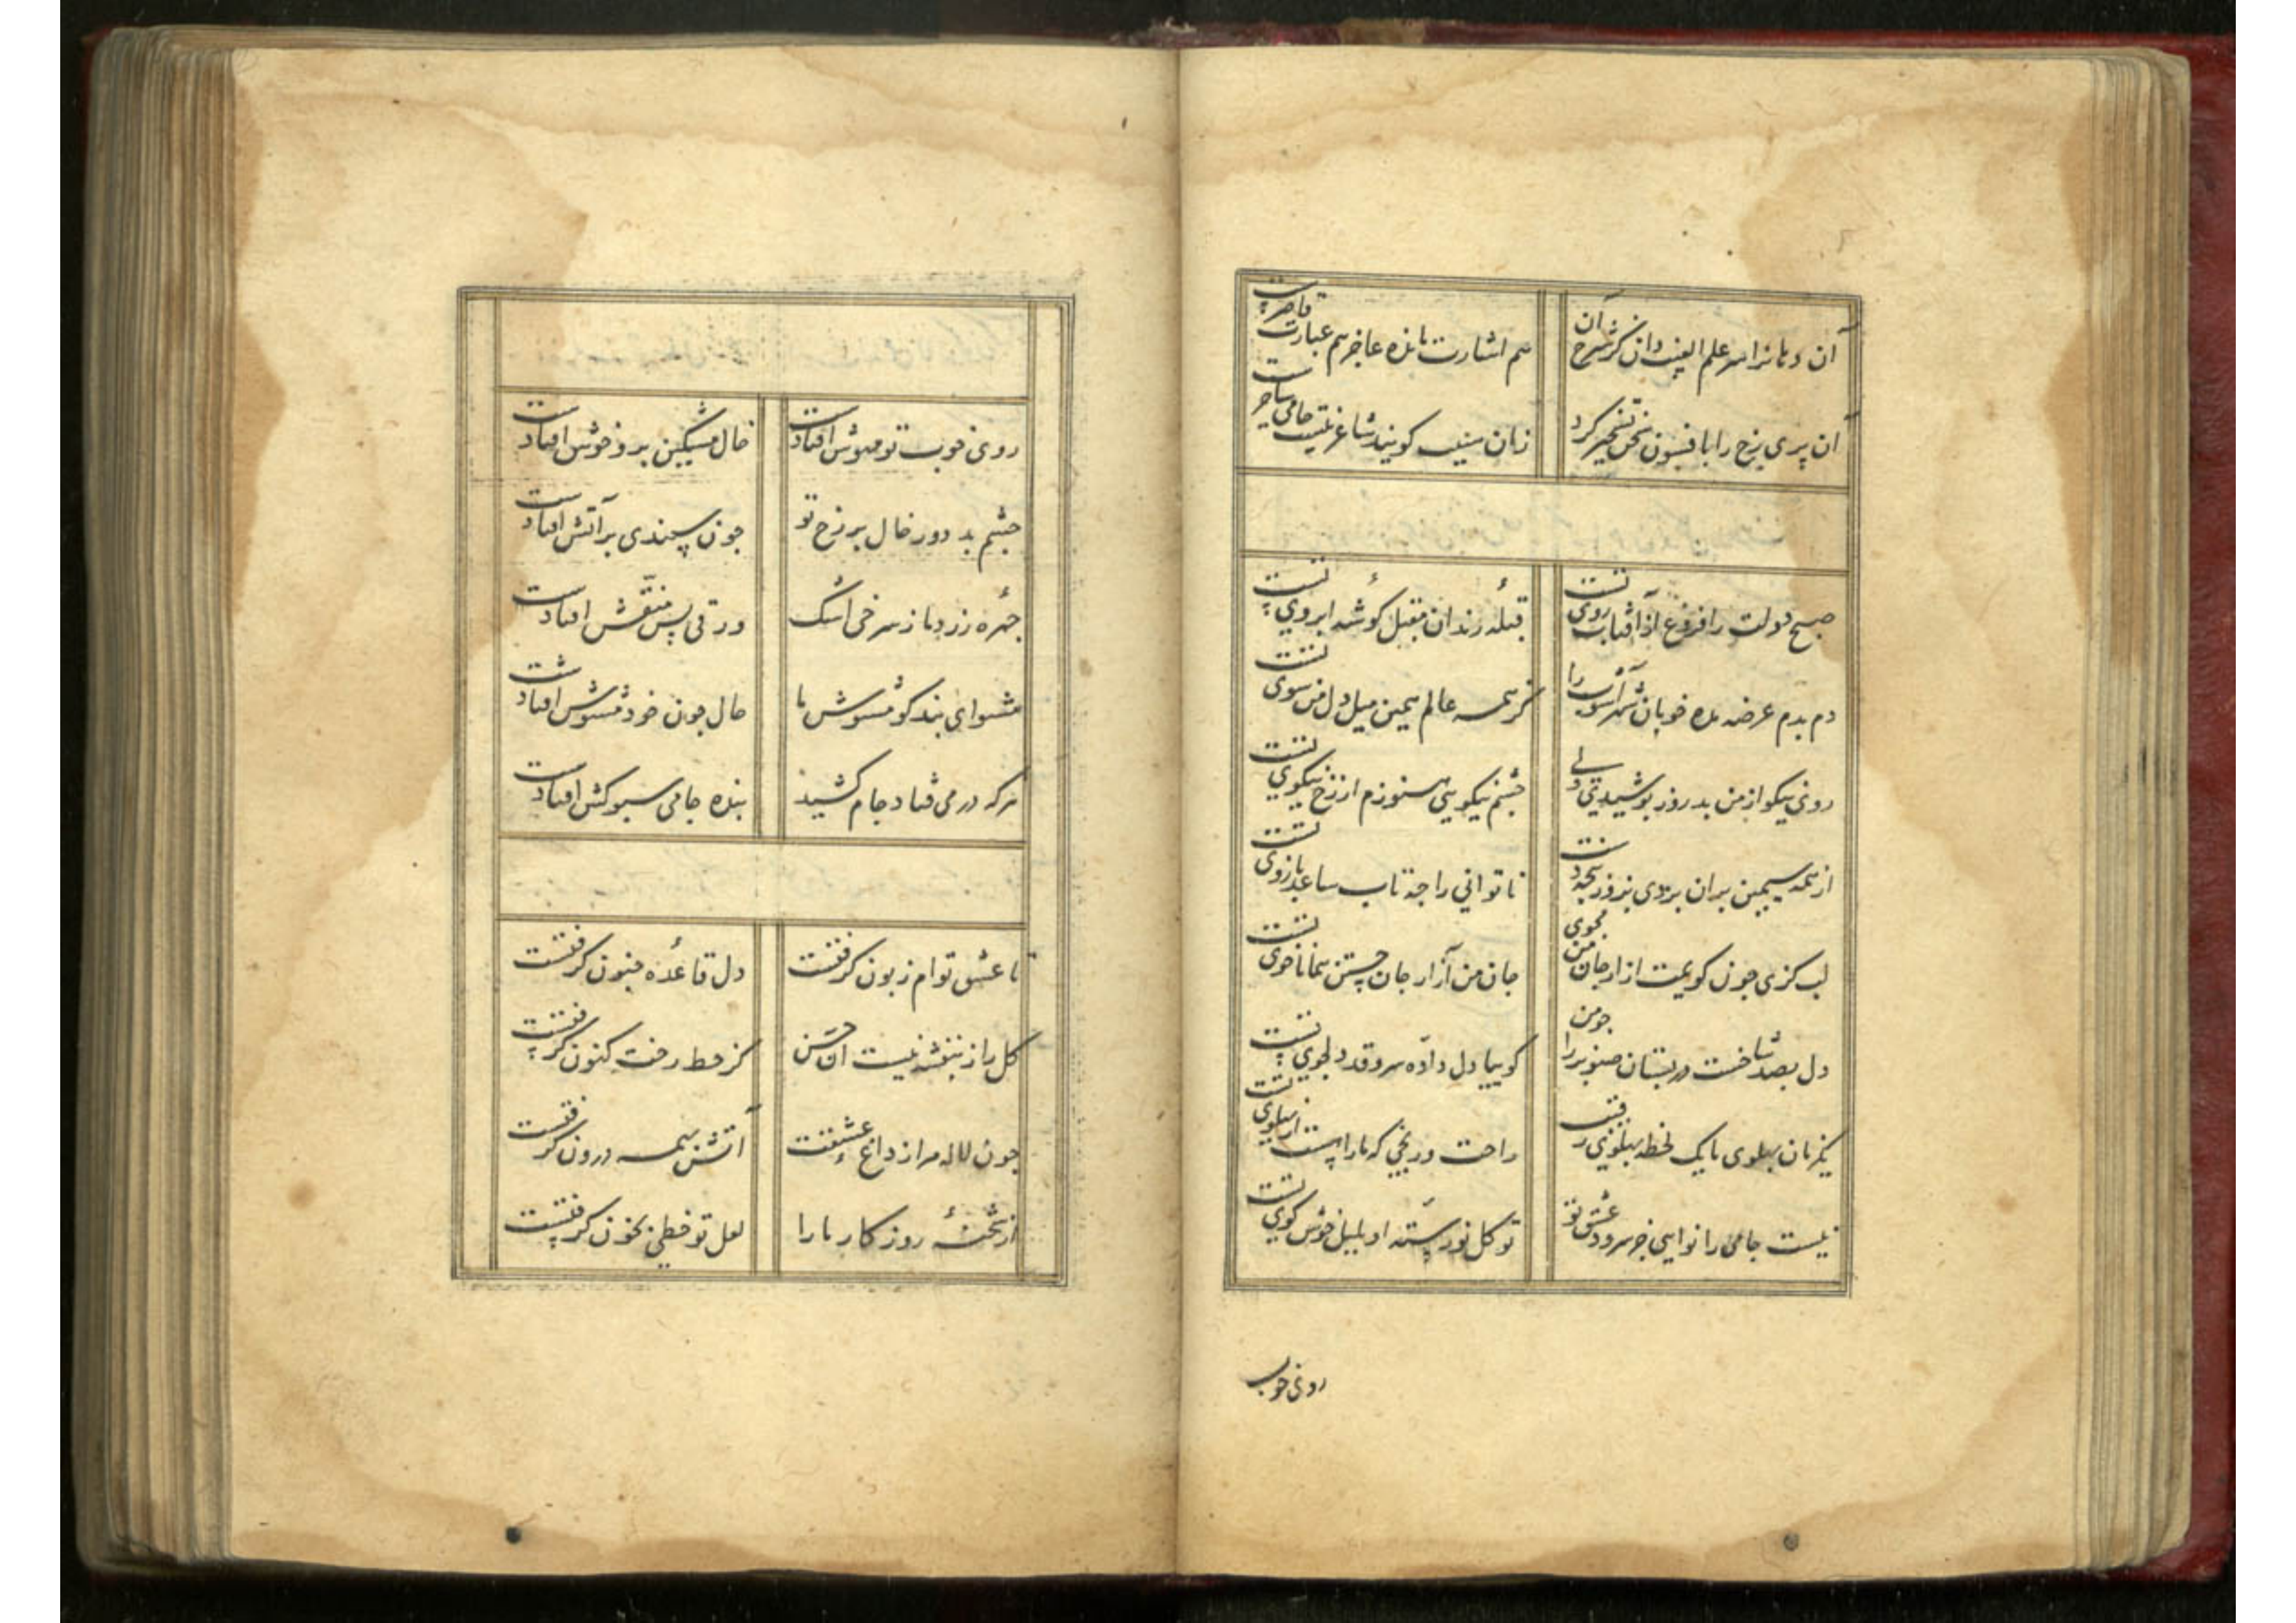 آن دهانرا سر علم الغیب دان کز شرح آن
هم اشارت مانده عاجز هم عبارت قاصرست
آن پری رخ را بافسون سخن تسخیر کرد
زان سبب گویند شاعر نیست جامی ساحرست
صبح دولت را فروغ از آفتاب روی تست
قبلهٔ رندان مقبل گوشهٔ ابروی تست
دم بدم عرضه مده خوبان شهرآشوب را
کز همه عالم همین میل دل من سوی تست
روی نیکو از من بدروز پوشیدی ولی
چشم نیکویی هنوزم از رخ نیکوی تست
از همه سیمین بران بردی بزور پنجه دست
ناتوانی را چه تاب ساعد و بازوی تست
لب گزی چون گویمت آزار جان من مجوی
جان من آزار جان جستن همانا خوی تست
دل بصد شاخست در بستان صنوبر را چو من
گوییا دل داده سرو قد دلجوی تست
یکزمان پهلوی ما یک لحظه پهلوی رقیب
راحت و رنجی که ما راهست از پهلوی تست
نیست جامی را نوایی جز سرود عشق تو
تو گل نورسته او بلبل خوش گوی تست
روی خوب
روی خوب تو مهوش افتادست
خال مشکین برو خوش افتادست
چشم بد دور خال بر رخ تو
چون سپندی بر آتش افتادست
چهرهٔ زرد ما ز سرخی اشک
ورقی بس منقّش افتادست
مشنو ای پندگو مشوش ما
حال چون خود مشوش افتادست
هرکه در می فتاد جام کشید
بنده جامی سبوکش افتادست
تا عشق توام زبون گرفتست
دل قاعدهٔ جنون گرفتست
گل را ز بنفشه نیست آن حسن
کز خط رخت کنون گرفتست
چون لاله مرا ز داغ عشقت
آتش همه درون گرفتست
از شحنهٔ روزگار ما را
لعل تو خطی بخون گرفتست